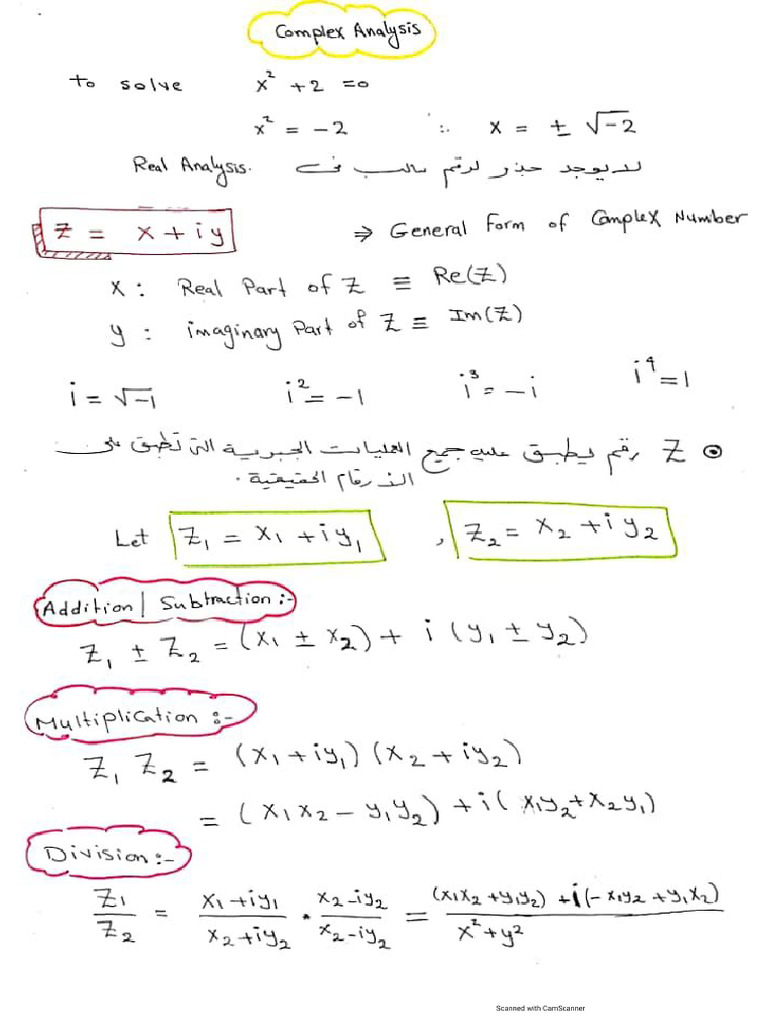 Complex Analysis
to solve x² + 2 = 0
x² = -2 ∴ x = ± √-2
Real Analysis. لا يوجد جذر لرقم سالب في
Z = x + iy ⇒ General Form of Complex Number
x : Real Part of Z ≡ Re(Z)
y : imaginary Part of Z ≡ Im(Z)
i = √-1 i² = -1 i³ = -i i⁴ = 1
⊙ Z رقم يطبق عليه جميع العمليات الجبرية التي تطبق على
الأرقام الحقيقية .
Let Z₁ = x₁ + iy₁ , Z₂ = x₂ + iy₂
Addition / Subtraction :-
Z₁ ± Z₂ = (x₁ ± x₂) + i (y₁ ± y₂)
Multiplication :-
Z₁ Z₂ = (x₁ + iy₁) (x₂ + iy₂)
= (x₁x₂ - y₁y₂) + i( x₁y₂ + x₂y₁)
Division :-
Z₁/Z₂ = (x₁ + iy₁)/(x₂ + iy₂) • (x₂ - iy₂)/(x₂ - iy₂) = ((x₁x₂ + y₁y₂) + i(-x₁y₂ + y₁x₂))/(x² + y²)
Scanned with CamScanner